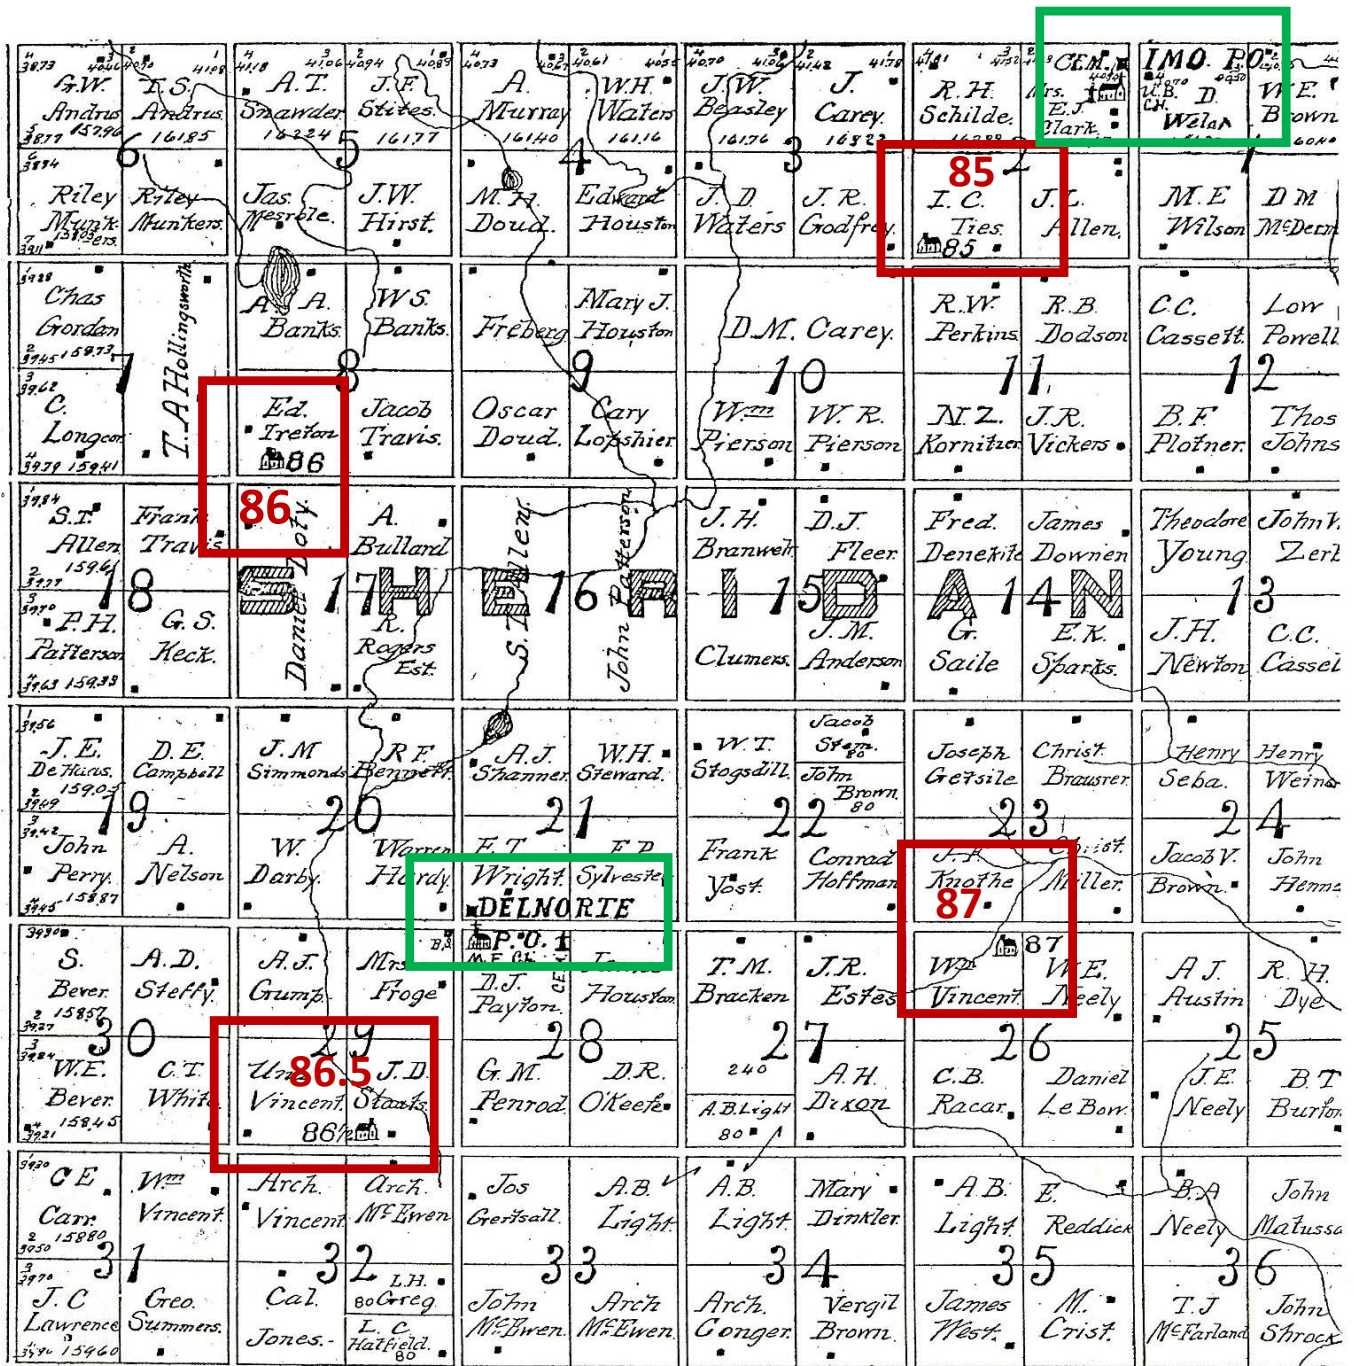 G.W. Andrus 157.96
T.S. Andrus 161.85
6
A.T. Snawder 162.24
J.F. Stites 161.77
5
A. Murray 161.40
W.H. Waters 161.16
4
J.W. Beasley 161.76
J. Carey
3
R.H. Schilde.
CEM.
Mrs. E.J. Clark.
2
IMO P.O.
U.B. CH.
D. Welsh
W.E. Brown
Riley Munkers.
Riley Munkers.
Jas. Mesrble.
J.W. Hirst.
M.H. Doud.
Edward Houston
J.D. Waters
J.R. Godfrey
85
I.C. Ties.
85
J.L. Allen.
M.E Wilson
D M McDerm
Chas Gordan 159.73
T.A Hollingsworth
7
A. A. Banks
W S. Banks.
8
Freberg
Mary J. Houston
9
D.M. Carey.
10
R.W. Perkins
R.B. Dodson
11
C.C. Cassett.
Low Powell
12
C. Longcor 159.41
Ed. Ireton
86
Jacob Travis.
Oscar Doud.
Cary Lopshier
Wm Pierson
W.R. Pierson
N.Z. Kornitzer
J.R. Vickers
B.F. Plotner.
Thos Johns
86
S.T. Allen 159.61
Frank Travis
18
Daniel Doty.
A. Bullard
17
S.T. Allen.
John Patterson
16
J.H. Branwell
D.J. Fleer.
15
Fred. Denekite
James Downen
14
Theodore Young
John W. Zerb
13
SHERIDAN
P.H. Patterson 159.33
G.S. Keck.
R. Rogers Est.
Clumers.
J.M. Anderson
G. Saile
E.K. Sparks.
J.H. Newton
C.C. Cassel
J.E. DeHaas.
D.E. Campbell
19
J.M Simmonds
R F. Bennett.
20
A.J. Shanner
W.H. Steward.
21
W.T. Stogsdill.
Jacob Stem. 80
John Brown. 80
22
Joseph Getsile
Christ. Brausrer.
23
Henry Seba.
Henry Weins
24
John Perry. 158.87
A. Nelson
W. Darby.
Warren Hardy.
E.T. Wright.
Sylvester
DELNORTE
P.O.
M.E. Ch.
CEM.
Frank Yost.
Conrad Hoffman
Knothe
87
Christ. Miller.
Jacob V. Brown.
John Henne
S. Bever. 158.57
A.D. Steffy.
30
A.J. Gump.
Mrs Froge
29
D.J. Payton.
James Houston
28
T.M. Bracken
J.R. Estes
27
Wm Vincent
87
W.E. Neely
26
A J. Austin
R. H. Dye
25
W.E. Bever. 158.45
C.T. White
86.5
Vincent.
J.D. Staats.
86½
G.M. Penrod.
D.R. O'Keefe
240
A.B. Light 80
A.H. Dixon
C.B. Racar.
Daniel LeBow.
J.E. Neely
B.T Burton
C E. Carr. 158.80
Wm Vincent.
31
Arch. Vincent
Arch. McEwen
32
Jos Gertsall.
A.B. Light.
33
A.B. Light.
Mary Dinkler.
34
A.B. Light
E. Reddick
35
B.A Neely
John Matussa
36
J.C Lawrence 159.60
Geo. Summers.
Cal. Jones.
L.H. Greg 80
L. C. Hatfield. 80
John McEwen.
Arch McEwen.
Arch. Conger.
Vergil Brown.
James West.
M. Crist.
T.J McFarland
John Shrock